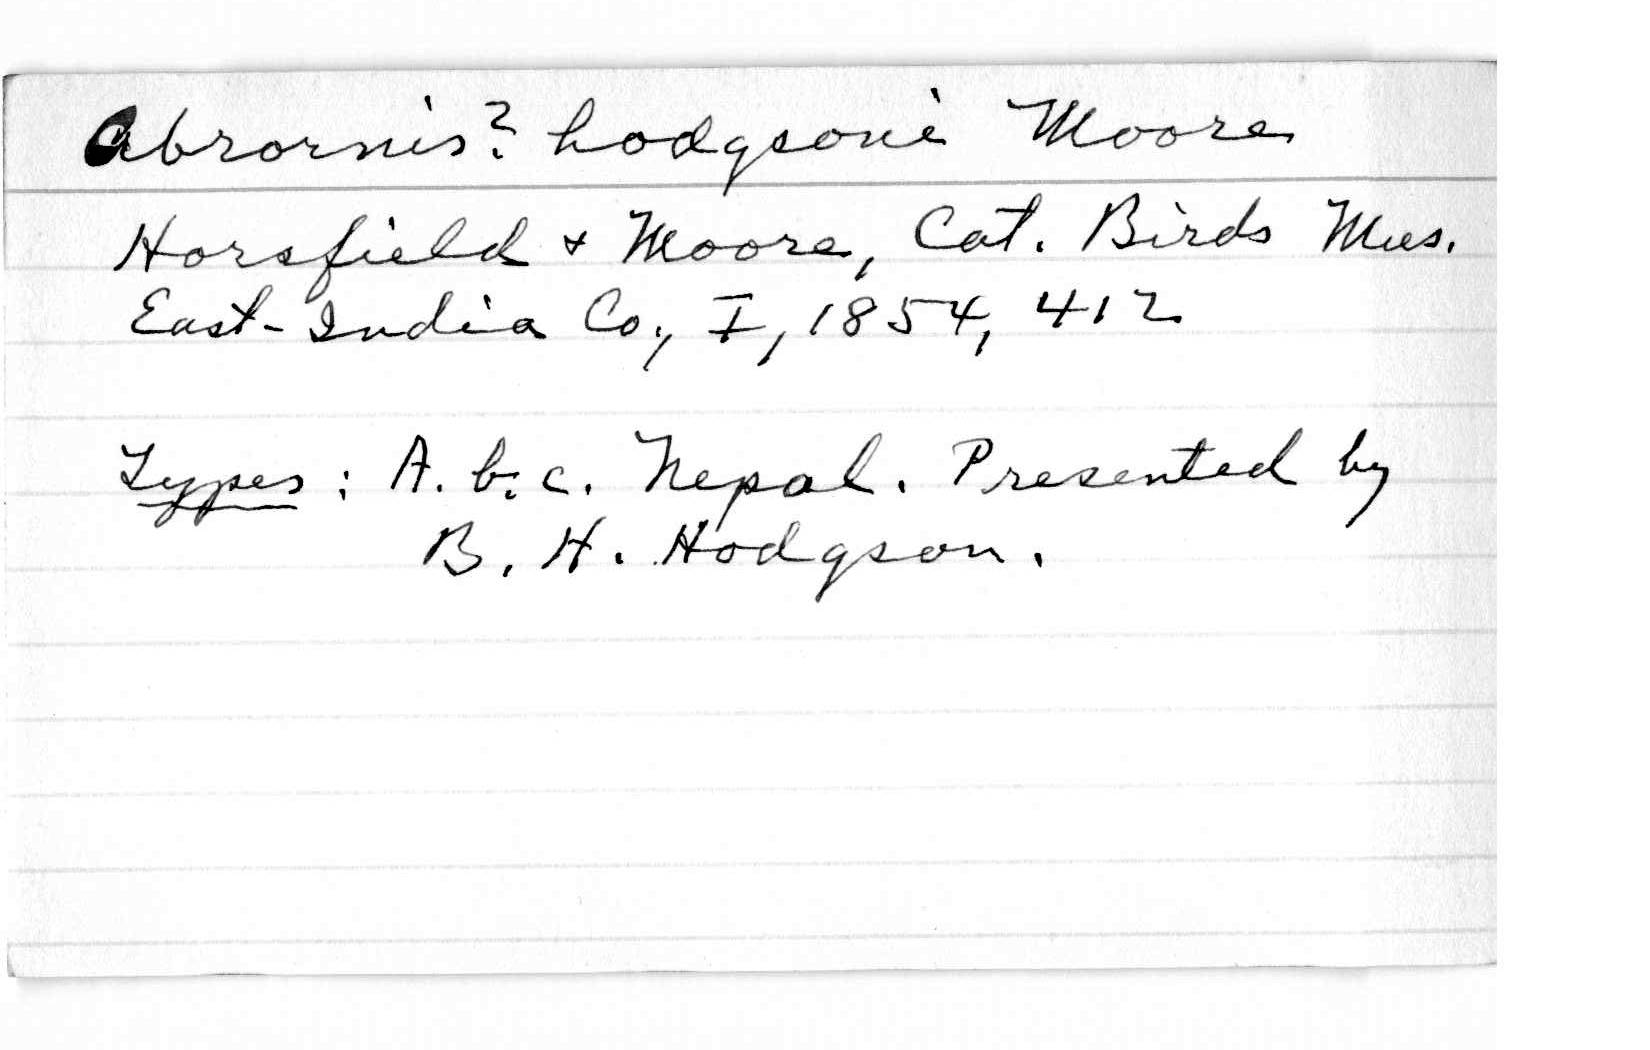 Abrornis? hodgsoni Moore
Horsfield & Moore, Cat. Birds Mus.
East-India Co., I, 1854, 412
Types: A. b. c. Nepal. Presented by
B. H. Hodgson.